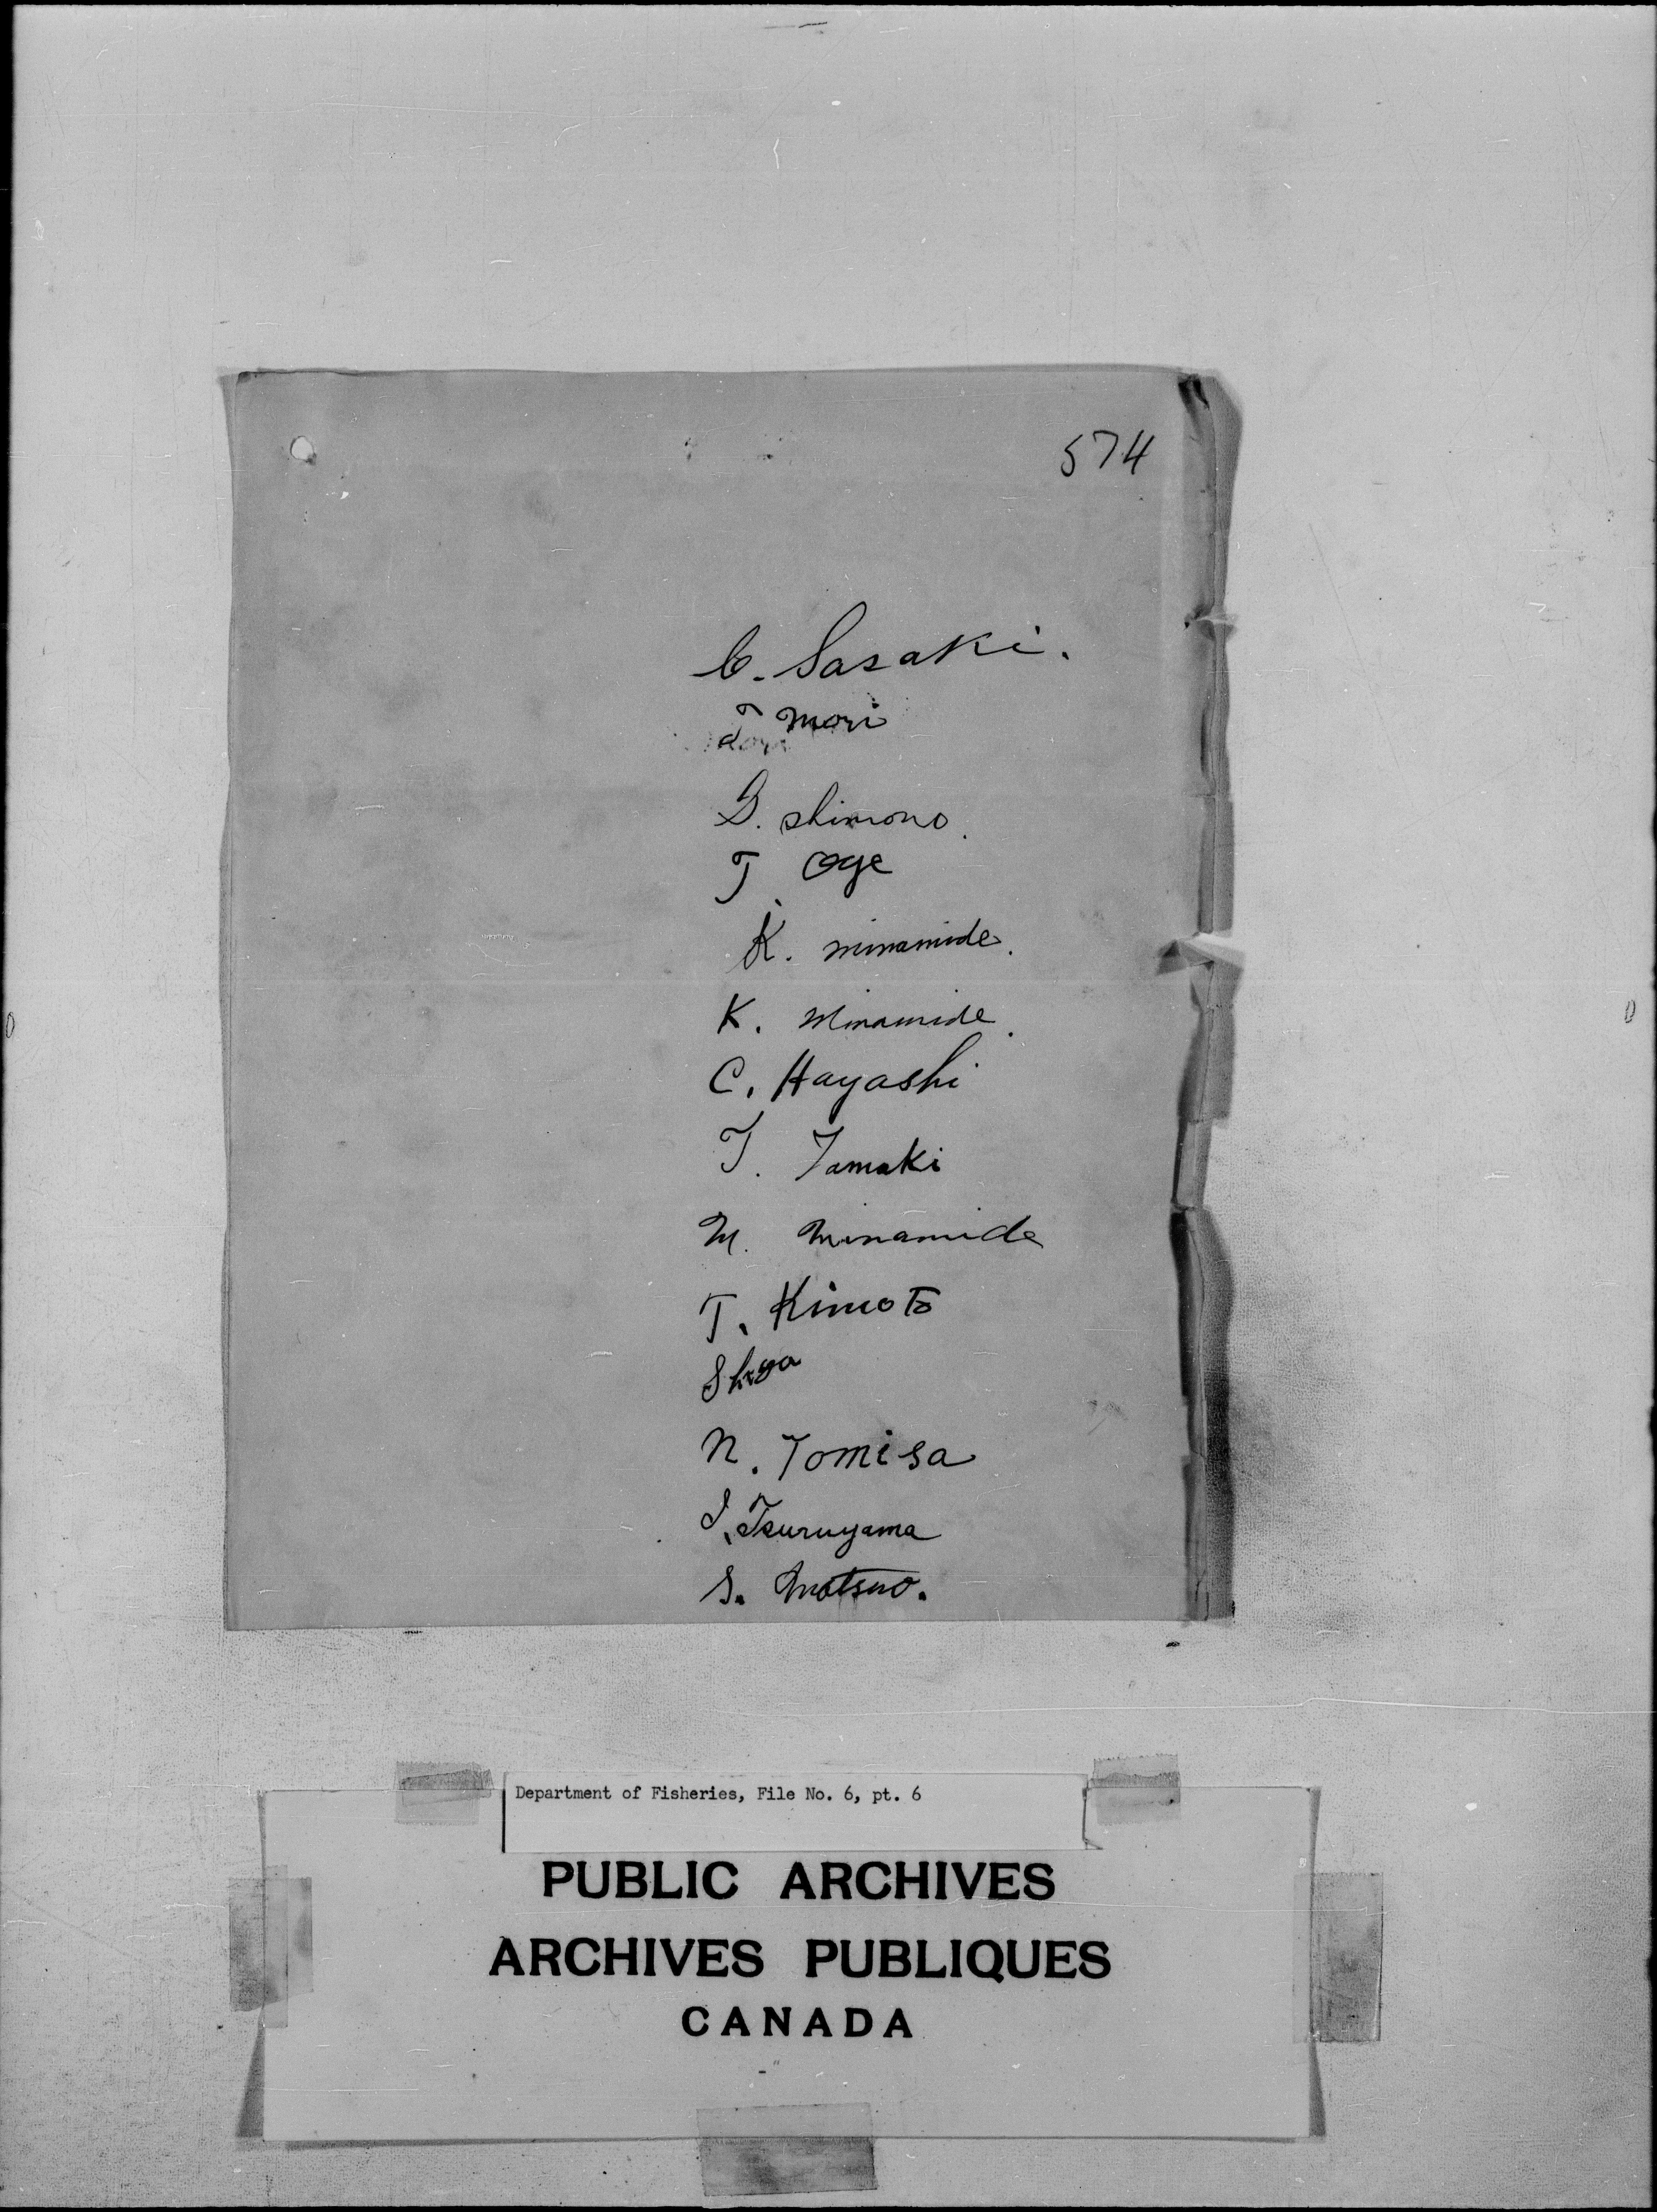 574
C. Sasaki.
T mori
G. shimono.
T. Oge
K. minamide.
K. Minamide.
C. Hayashi
T. Tamaki
M. Minamide
T. Kimoto
Shiga
N. Tomisa
I. Tsuruyama
S. Matsuo.
Department of Fisheries, File No. 6, pt. 6
PUBLIC ARCHIVES
ARCHIVES PUBLIQUES
CANADA